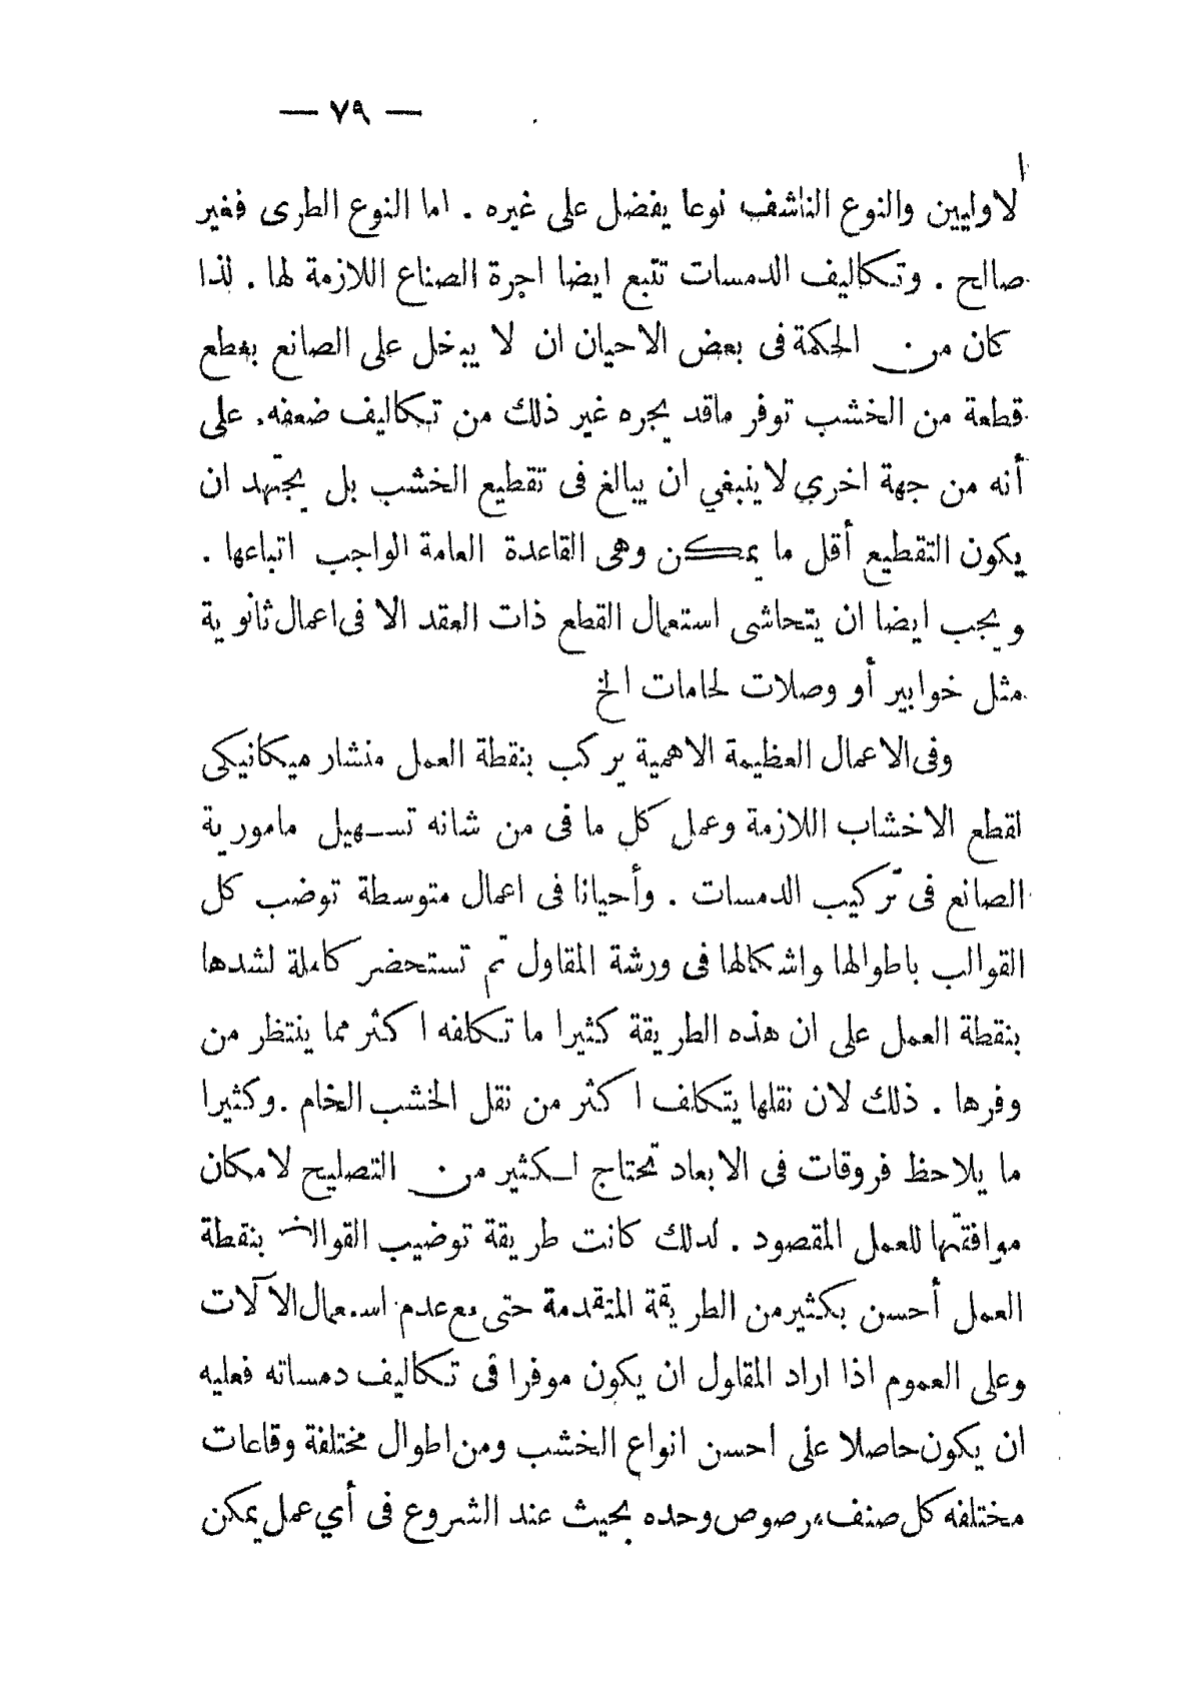 — ٧٩ —
الاوليين والنوع الناشف نوعا يفضل على غيره . اما النوع الطرى فغير
صالح . وتكاليف الدمسات تتبع ايضا اجرة الصناع اللازمة لها . لذا
كان من الحكمة فى بعض الاحيان ان لا يبخل على الصانع بقطع
قطعة من الخشب توفر ماقد يجره غير ذلك من تكاليف ضعفه. على
أنه من جهة اخري لاينبغي ان يبالغ فى تقطيع الخشب بل يجتهد ان
يكون التقطيع أقل ما يمكن وهى القاعدة العامة الواجب اتباعها .
ويجب ايضا ان يتحاشى استعمال القطع ذات العقد الا فى اعمال ثانوية
مثل خوابير أو وصلات لحامات الخ
وفى الاعمال العظيمة الاهمية يركب بنقطة العمل منشار ميكانيكى
لقطع الاخشاب اللازمة وعمل كل ما فى من شانه تسهيل مامورية
الصانع فى تركيب الدمسات . وأحيانا فى اعمال متوسطة توضب كل
القوالب باطوالها واشكالها فى ورشة المقاول ثم تستحضر كاملة لشدها
بنقطة العمل على ان هذه الطريقة كثيرا ما تكلفه اكثر مما ينتظر من
وفرها . ذلك لان نقلها يتكلف اكثر من نقل الخشب الخام . وكثيرا
ما يلاحظ فروقات فى الابعاد تحتاج لكثير من التصليح لامكان
موافقتها للعمل المقصود . لذلك كانت طريقة توضيب القوالب بنقطة
العمل أحسن بكثير من الطريقة المتقدمة حتى مع عدم استعمال الآلات
وعلى العموم اذا اراد المقاول ان يكون موفرا فى تكاليف دمساته فعليه
ان يكون حاصلا على احسن انواع الخشب ومن اطوال مختلفة وقاعات
مختلفه كل صنف مرصوص وحده بحيث عند الشروع فى أي عمل يمكن